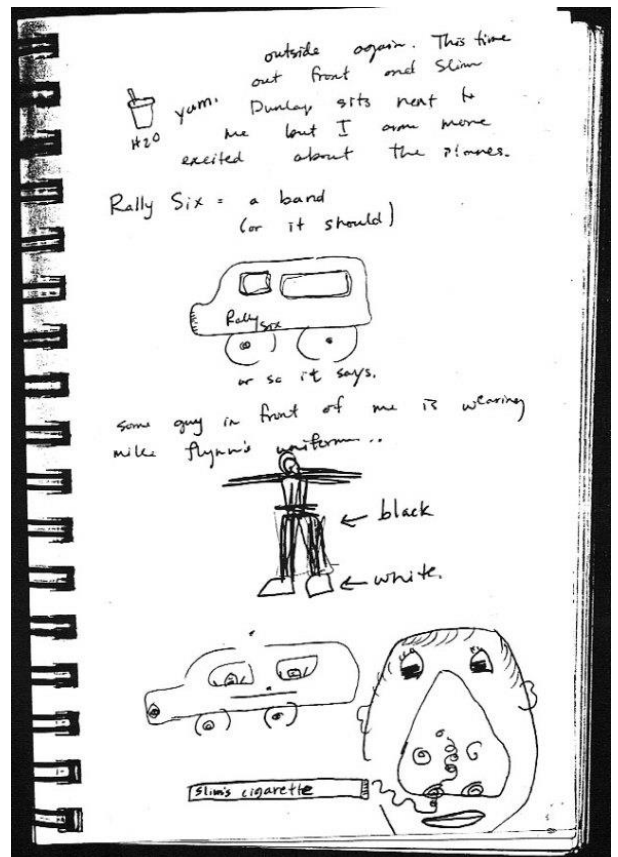 outside again. This time
out front and Slim
yum. Dunlap sits next to
H20 me but I am more
excited about the planes.
Rally Six = a band
(or it should)
Rally Six
or so it says.
some guy in front of me is wearing
mike flynn's uniform...
black
white.
Slim's cigarette